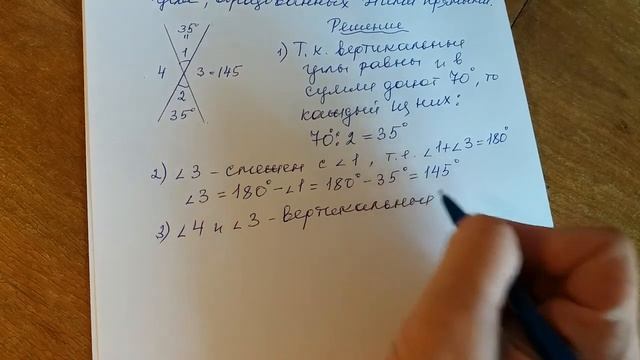 угле, образованных этими прямыми.
Решение
35°
"
1
4
3=145
2
35°
1) Т.к. вертикальные
углы равны и в
сумме дают 70°, то
каждый из них:
70°:2=35°
2) ∠3 - смежен с ∠1, т.е. ∠1+∠3=180°
∠3=180°-∠1=180°-35°=145°
3) ∠4 и ∠3 - вертикальные